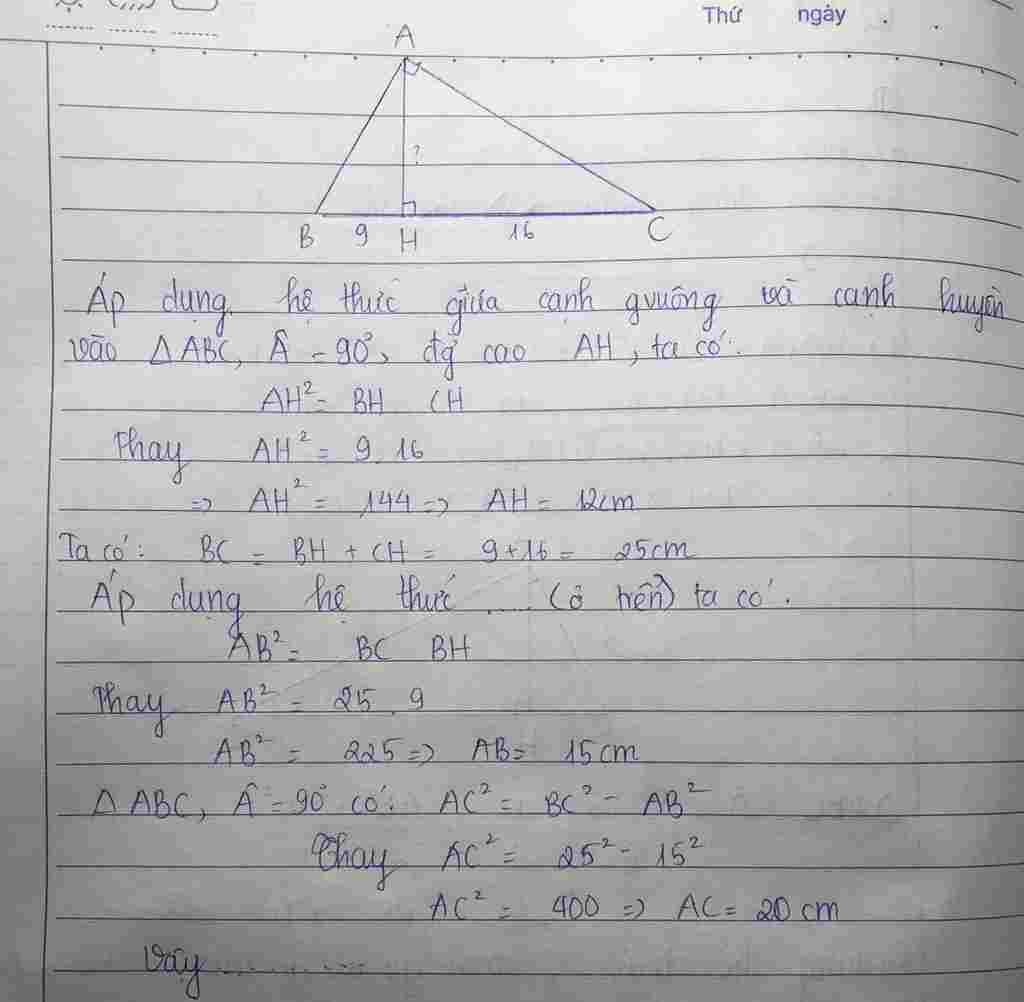 Thứ ngày . .
A
?
B 9 H 16 C
Áp dụng hệ thức giữa cạnh gvuông và cạnh huyền
vào Δ ABC, Â = 90°, đg cao AH, ta có:
AH² = BH . CH
Thay AH² = 9 . 16
=> AH² = 144 => AH = 12cm
Ta có: BC = BH + CH = 9+16 = 25cm
Áp dụng hệ thức ..... (ở trên) ta có:
AB² = BC . BH
Thay AB² = 25 . 9
AB² = 225 => AB = 15cm
Δ ABC, Â = 90° có: AC² = BC² - AB²
Thay AC² = 25² - 15²
AC² = 400 => AC = 20 cm
Vậy ...........